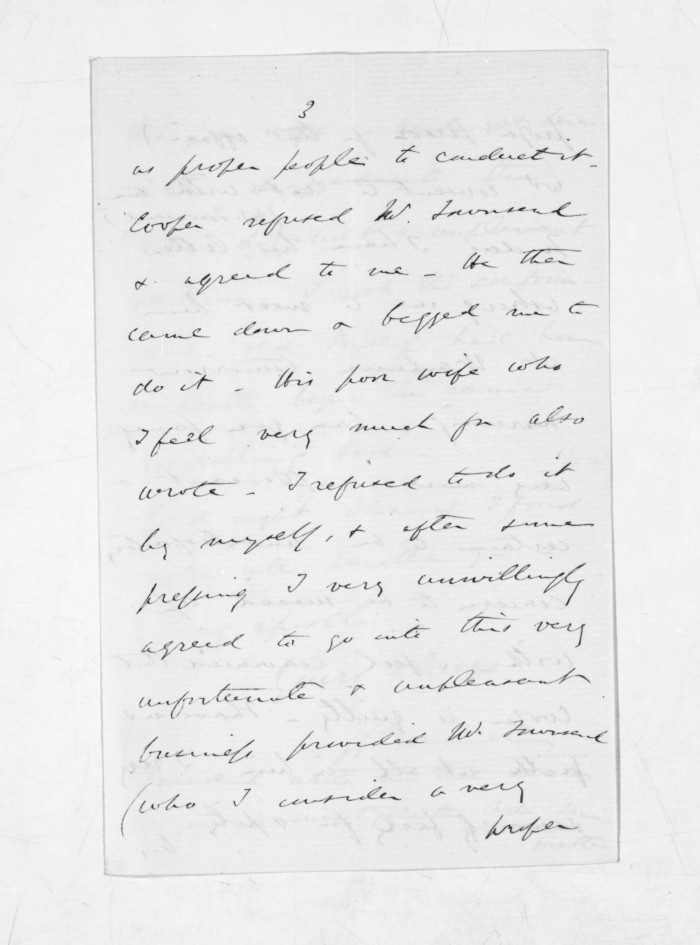 3
as proper people to conduct it -
Cooper refused Mr. Townsend
& agreed to me - He then
came down & begged me to
do it - His poor wife who
I feel very much for also
wrote - I refused to do it
by myself, & after some
pressing I very unwillingly
agreed to go into this very
unfortunate & unpleasant
business provided Mr. Townsend
(who I consider a very
proper